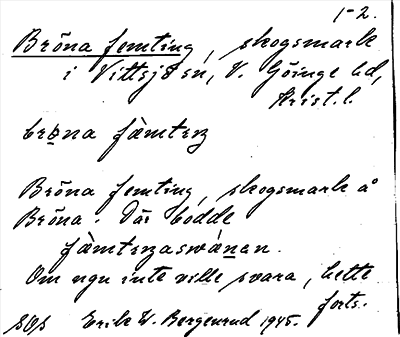 1-2.
Bröna femting, skogsmark
i Vittsjö sn, V. Göinge hd,
Krist. l.
brøna fàmteŋ
Bröna femting, skogsmark å
Bröna. Där bodde
fàmteŋaswánen.
Om ngn inte ville svara, hette
forts.
SOS Erik W. Borgenrud 1945.